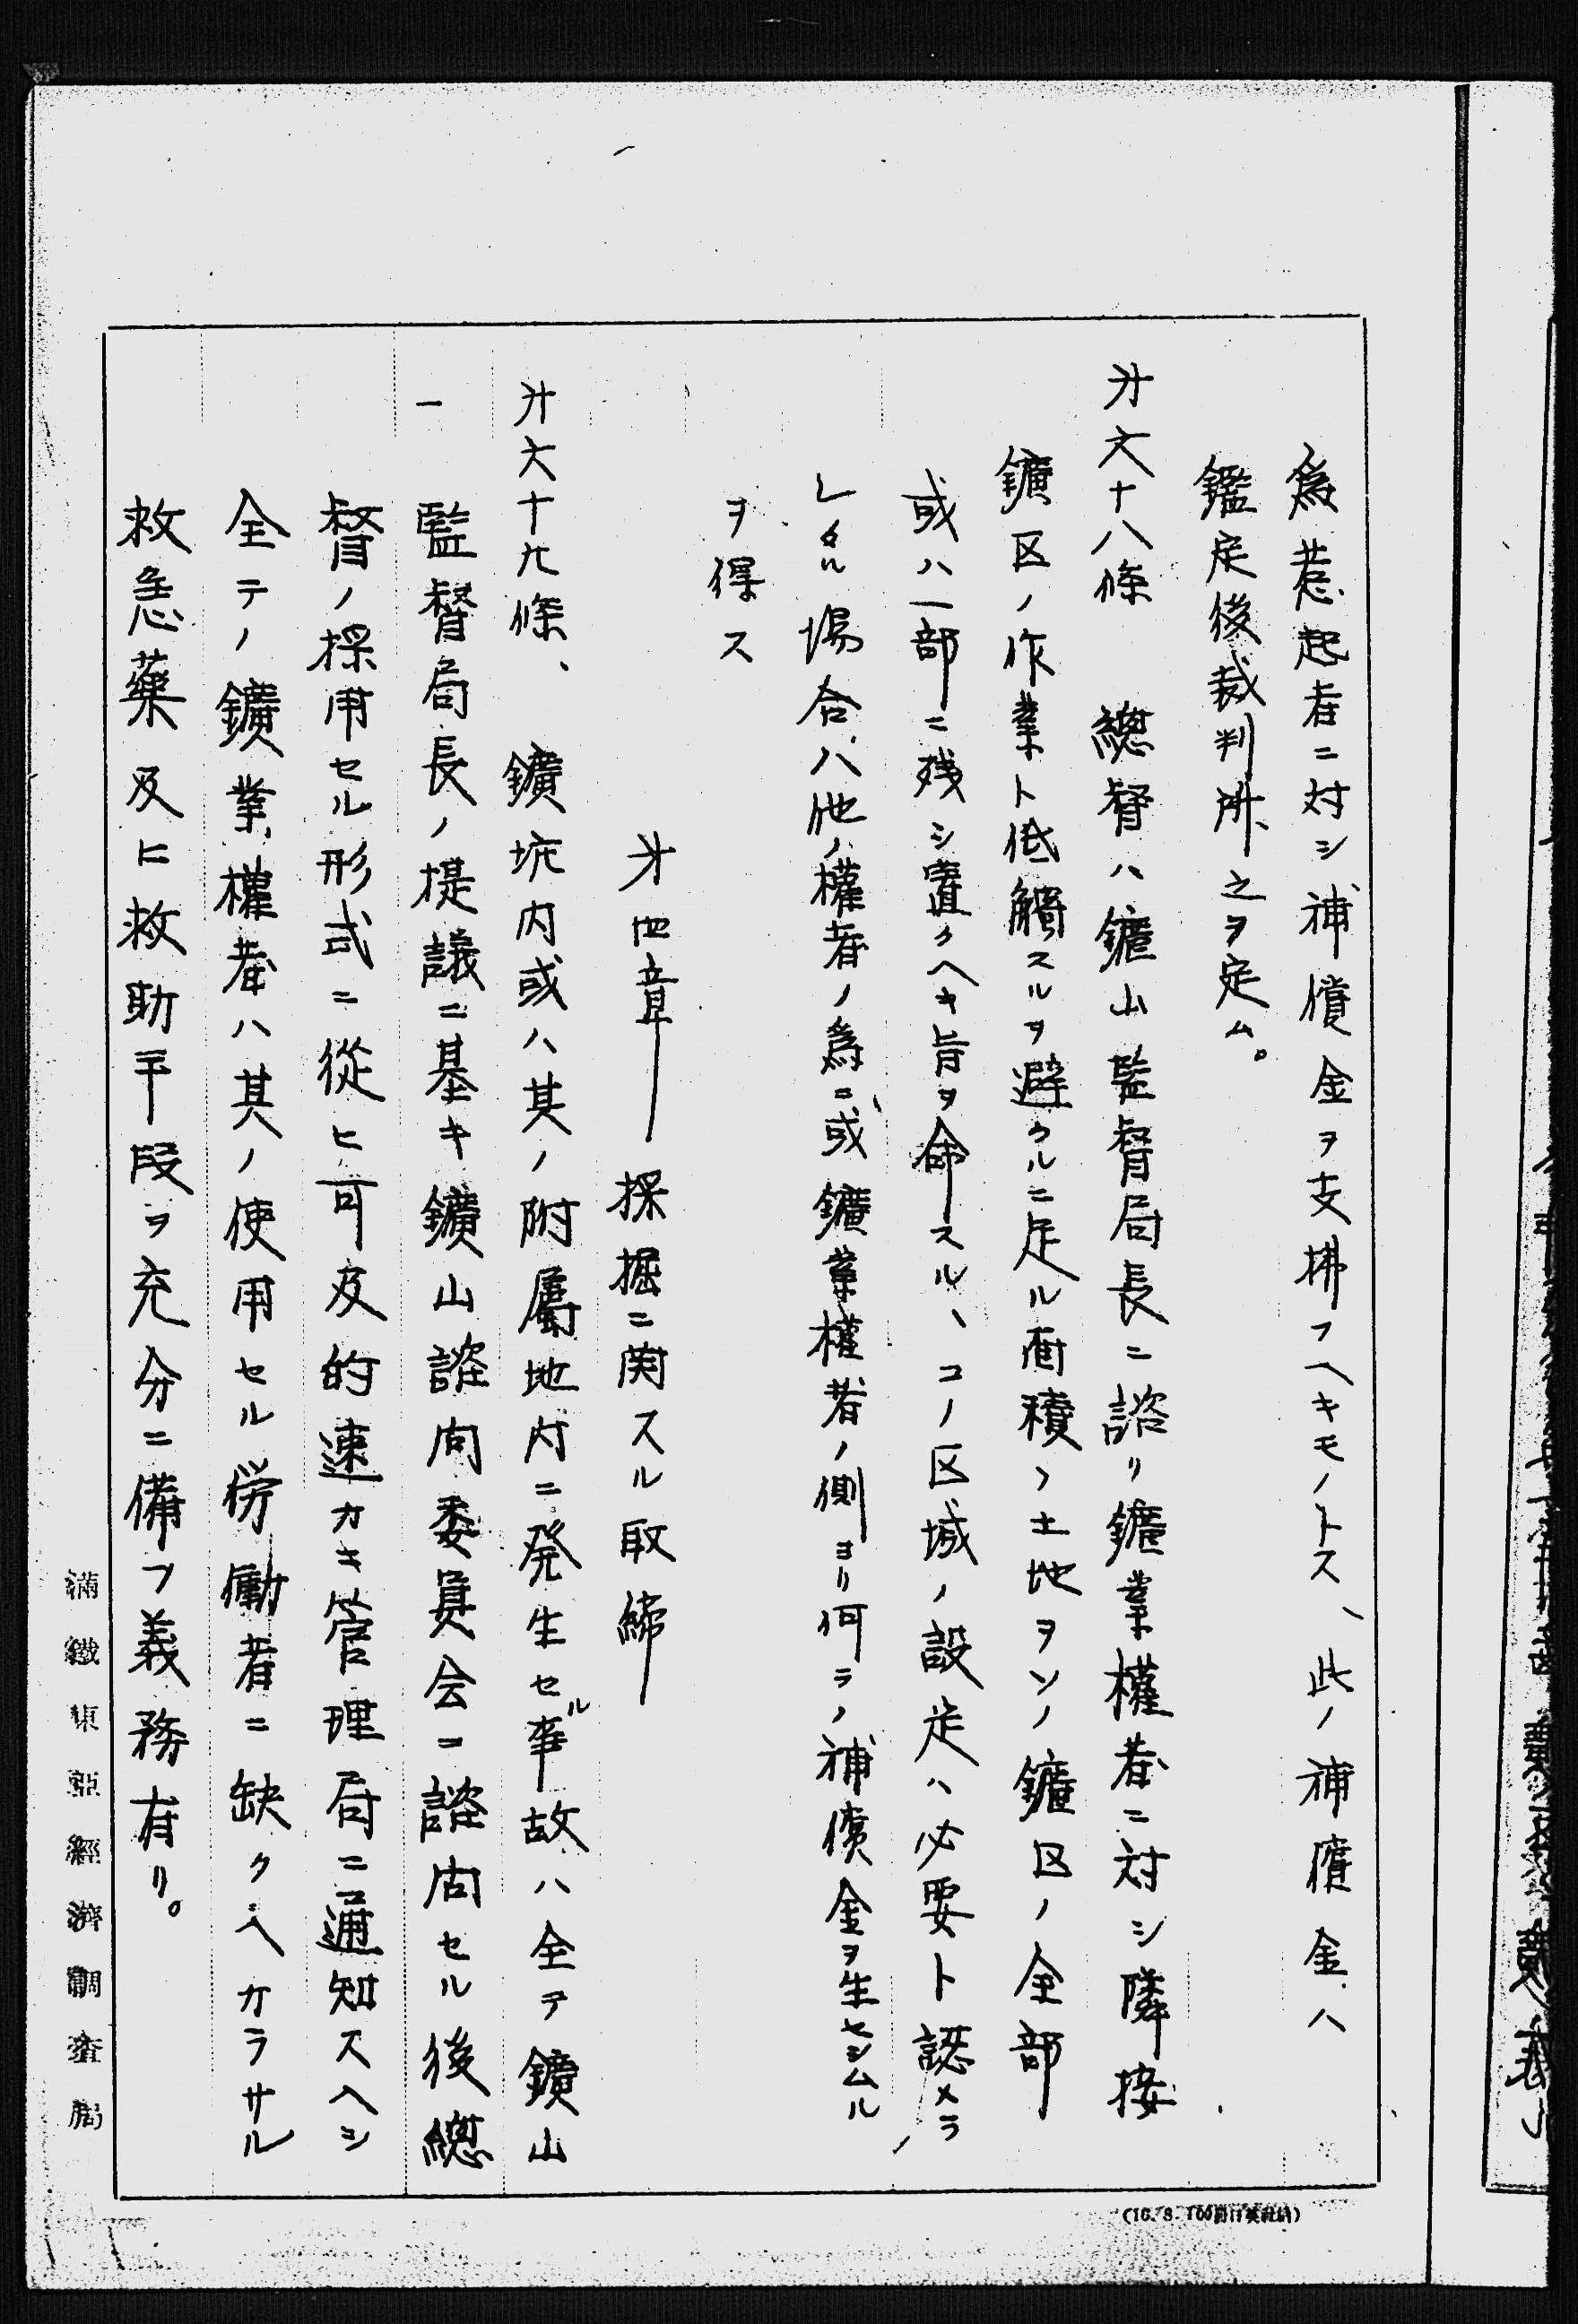 為惹起者ニ対シ補償金ヲ支拂フヘキモノトス、此ノ補償金ハ
鑑定後裁判所之ヲ定ム。
㐧六十八條　總督ハ鑛山監督局長ニ諮リ鑛業權者ニ対シ隣接
鑛区ノ作業ト低觸スルヲ避クルニ足ル面積ノ土地ヲソノ鑛区ノ全部
或ハ一部ニ残シ置クヘキ旨ヲ命スル、コノ区域ノ設定ハ必要ト認メラ
レタル場合ハ他ノ權者ノ為ニ或鑛業權者ノ側ヨリ何ラノ補償金ヲ生セシムル
ヲ得ス
㐧四章　採掘ニ関スル取締
㐧六十九條、鑛坑内或ハ其ノ附属地内ニ発生セル事故ハ全テ鑛山
一　監督局長ノ提議ニ基キ鑛山諮问委員会ニ諮问セル後總
督ノ採用セル形式ニ從ヒ可及的速カニ管理局ニ通知スヘシ
全テノ鑛業權者ハ其ノ使用セル労働者ニ缺クヘカラサル
救急藥及ヒ救助手段ヲ充分ニ備フ義務有リ。
滿鐵東亞經濟調査局